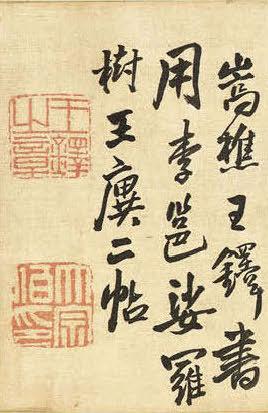 嵩樵王鐸書
用李邕娑羅
樹王廙二帖
王鐸
之章